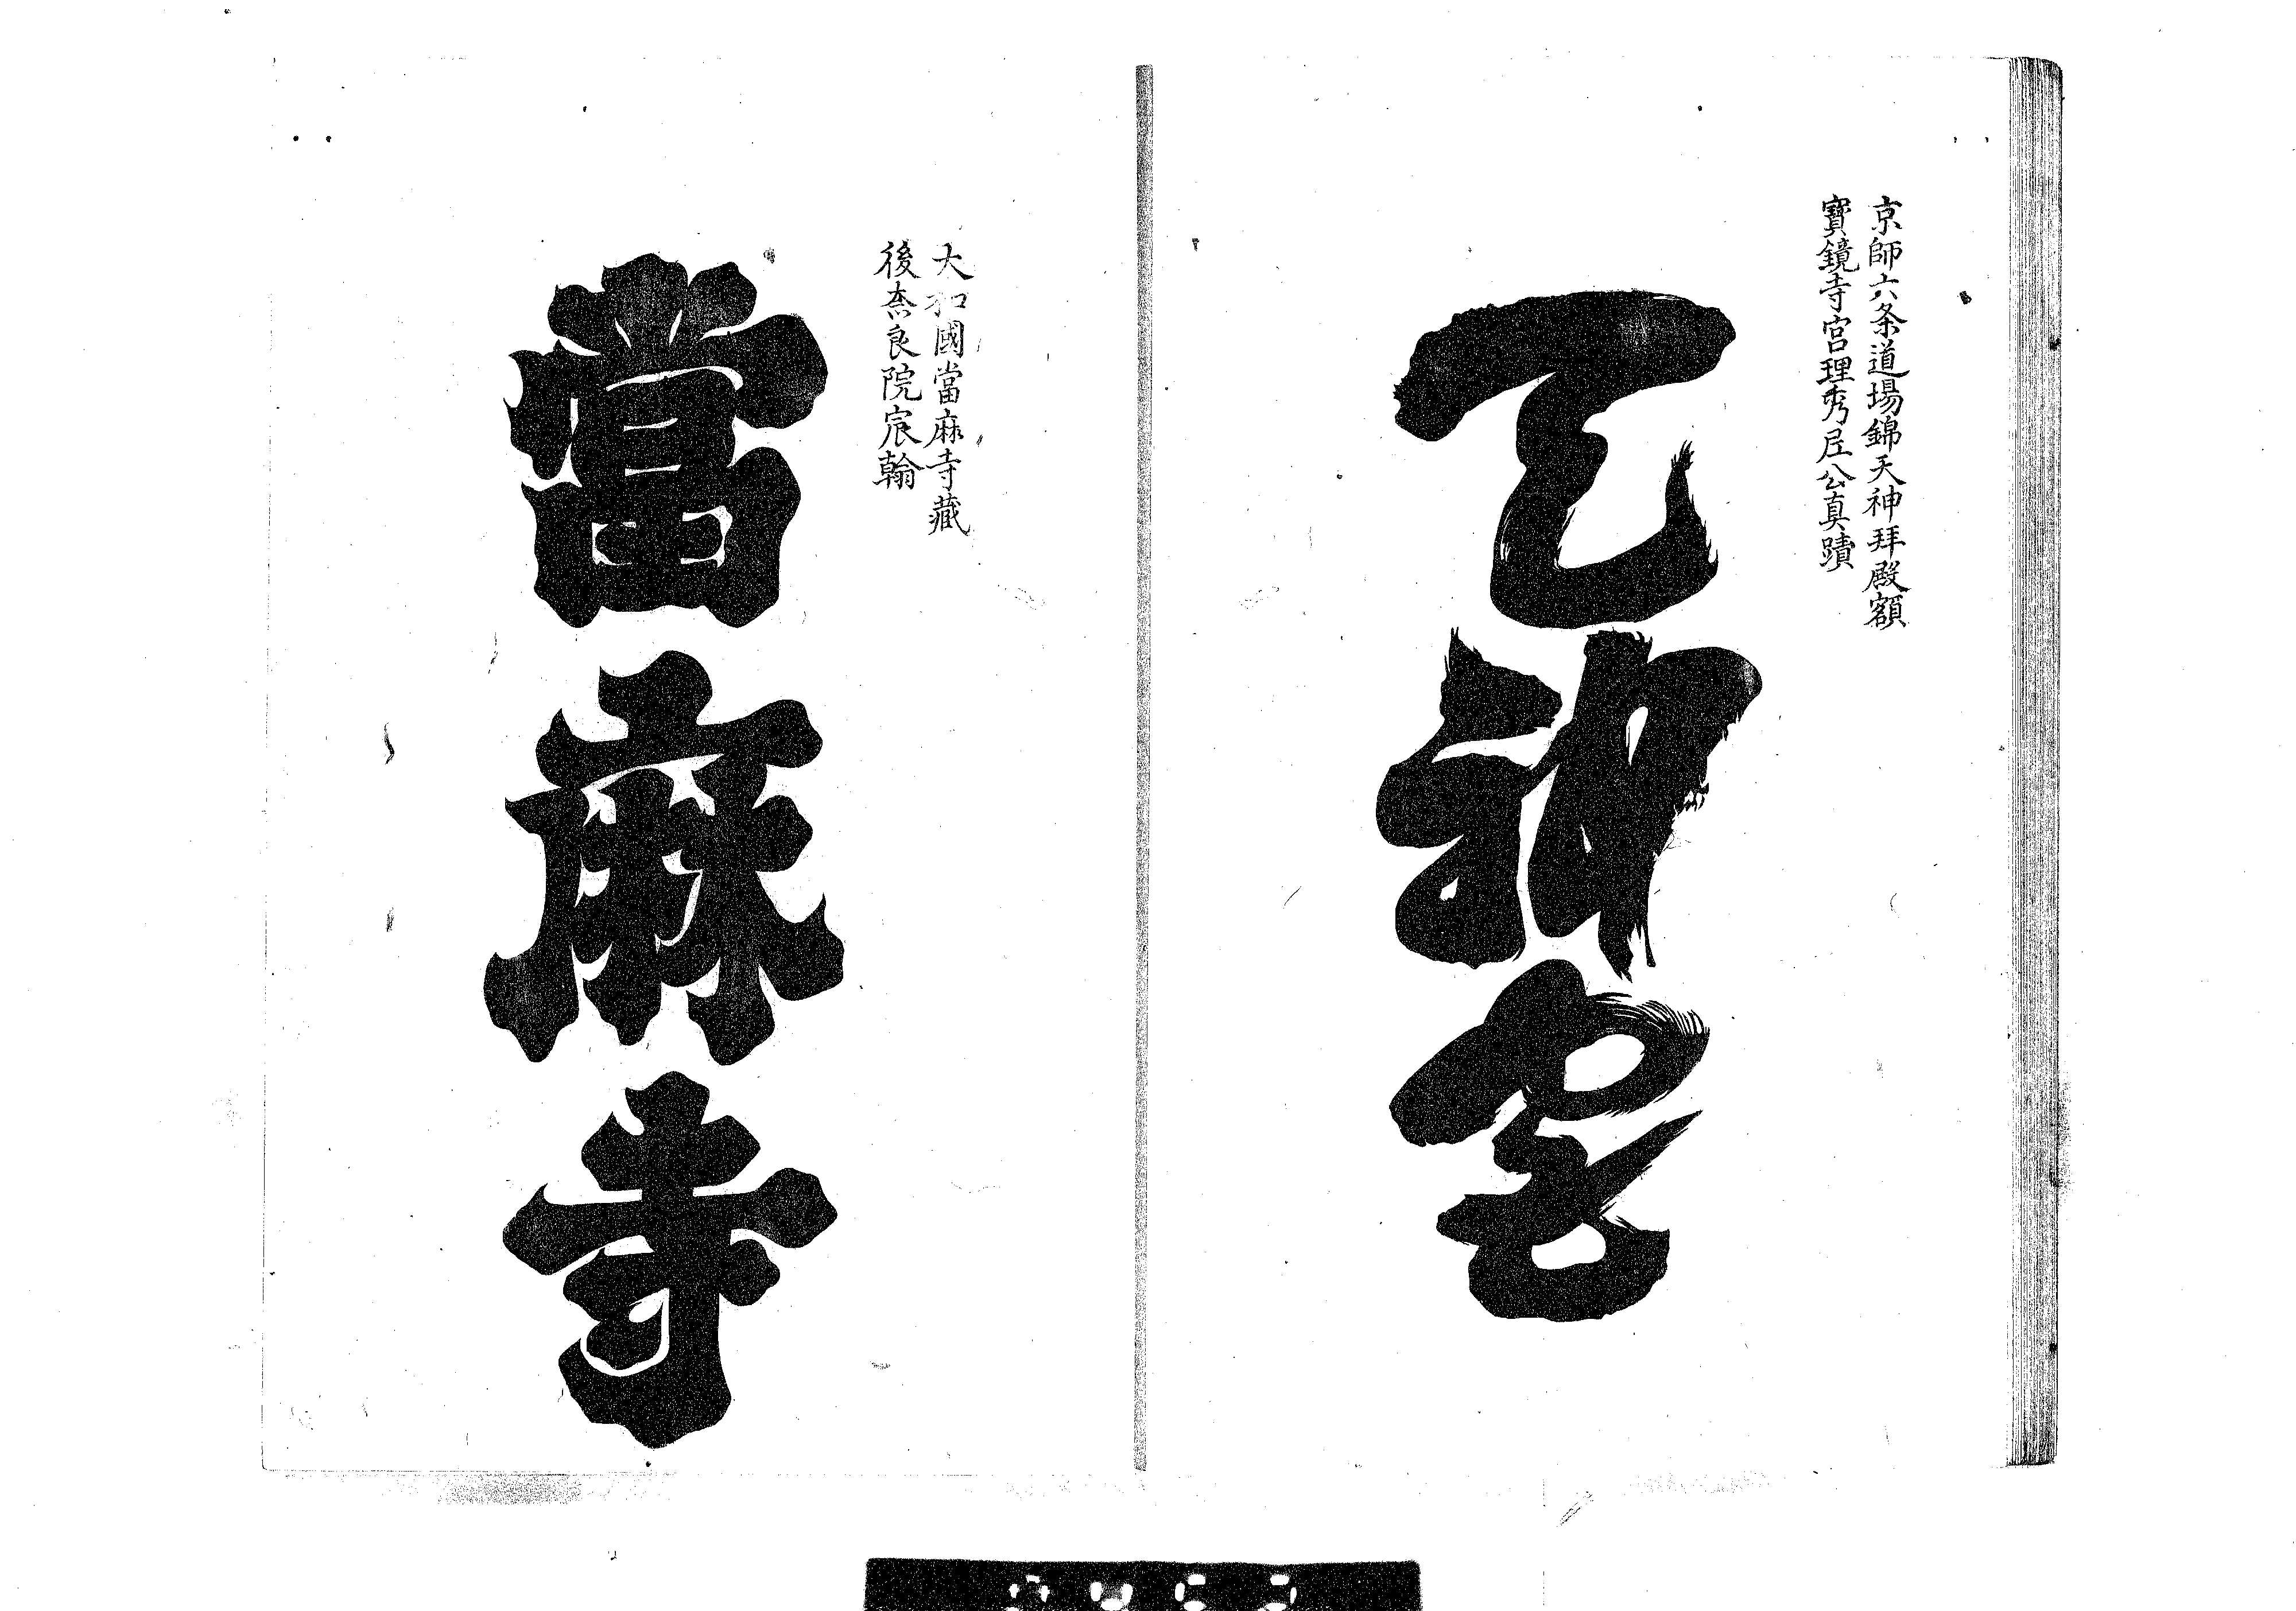 京師六条道場錦天神拜殿額
寶鏡寺宮理秀尼公真蹟
天神宮
大和國當麻寺藏
後奈良院宸翰
當麻寺